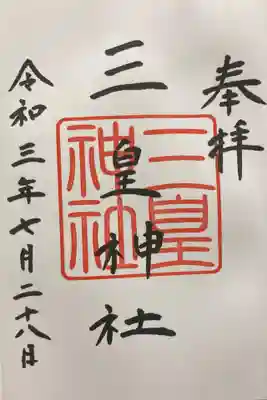 奉拝
三皇神社
三皇神社
令和三年七月二十八日